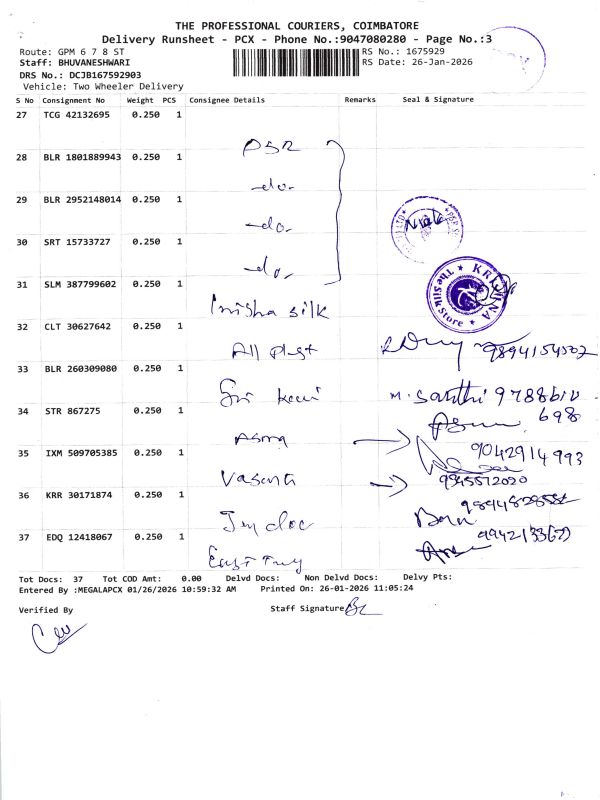 THE PROFESSIONAL COURIERS, COIMBATORE
Delivery Runsheet - PCX - Phone No.:9047080280 - Page No.:3
Route: GPM 6 7 8 ST
RS No.: 1675929
Staff: BHUVANESHWARI
RS Date: 26-Jan-2026
DRS No.: DCJB167592903
Vehicle: Two Wheeler Delivery
S No Consignment No Weight PCS Consignee Details Remarks Seal & Signature
27 TCG 42132695 0.250 1
PSR
28 BLR 1801889943 0.250 1
-do-
29 BLR 2952148014 0.250 1
-do-
30 SRT 15733727 0.250 1
-do-
31 SLM 387799602 0.250 1
KRISHNA
The Silk Store
silk
32 CLT 30627642 0.250 1
All
9894154502
33 BLR 260309080 0.250 1
Sri
M. Santhi 9788610
698
34 STR 867275 0.250 1
Asma
9042914993
35 IXM 509705385 0.250 1
Vasanth
9345572020
36 KRR 30171874 0.250 1
37 EDQ 12418067 0.250 1
Tot Docs: 37 Tot COD Amt: 0.00 Delvd Docs: Non Delvd Docs: Delvy Pts:
Entered By :MEGALAPCX 01/26/2026 10:59:32 AM Printed On: 26-01-2026 11:05:24
Verified By
Staff Signature